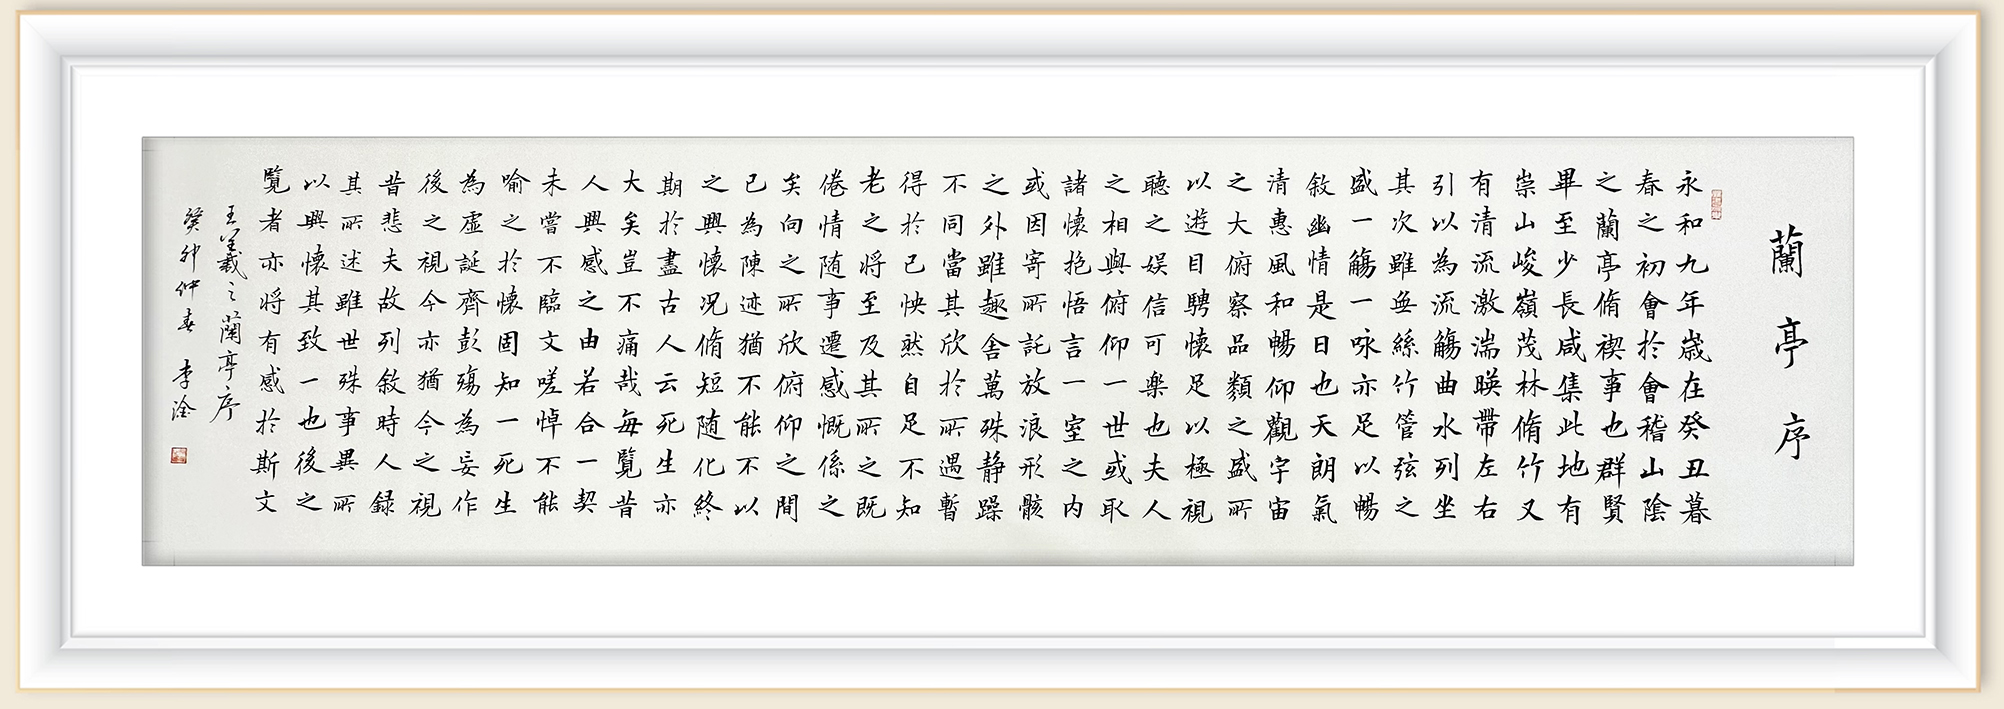 蘭亭序
永和九年歲在癸丑暮
春之初會於會稽山陰
之蘭亭脩禊事也群賢
畢至少長咸集此地有
崇山峻嶺茂林脩竹又
有清流激湍暎帶左右
引以為流觴曲水列坐
其次雖無絲竹管弦之
盛一觴一咏亦足以暢
敘幽情是日也天朗氣
清惠風和暢仰觀宇宙
之大俯察品類之盛所
以遊目騁懷足以極視
聽之娛信可樂也夫人
之相與俯仰一世或取
諸懷抱悟言一室之内
或因寄所託放浪形骸
之外雖趣舍萬殊静躁
不同當其欣於所遇暫
得於己怏然自足不知
老之將至及其所之既
倦情随事遷感慨係之
矣向之所欣俯仰之間
已為陳迹猶不能不以
之興懷况脩短随化終
期於盡古人云死生亦
大矣豈不痛哉每覽昔
人興感之由若合一契
未嘗不臨文嗟悼不能
喻之於懷固知一死生
為虛誕齊彭殤為妄作
後之視今亦猶今之視
昔悲夫故列敘時人録
其所述雖世殊事異所
以興懷其致一也後之
覽者亦將有感於斯文
王羲之蘭亭序
癸卯仲春 李淦